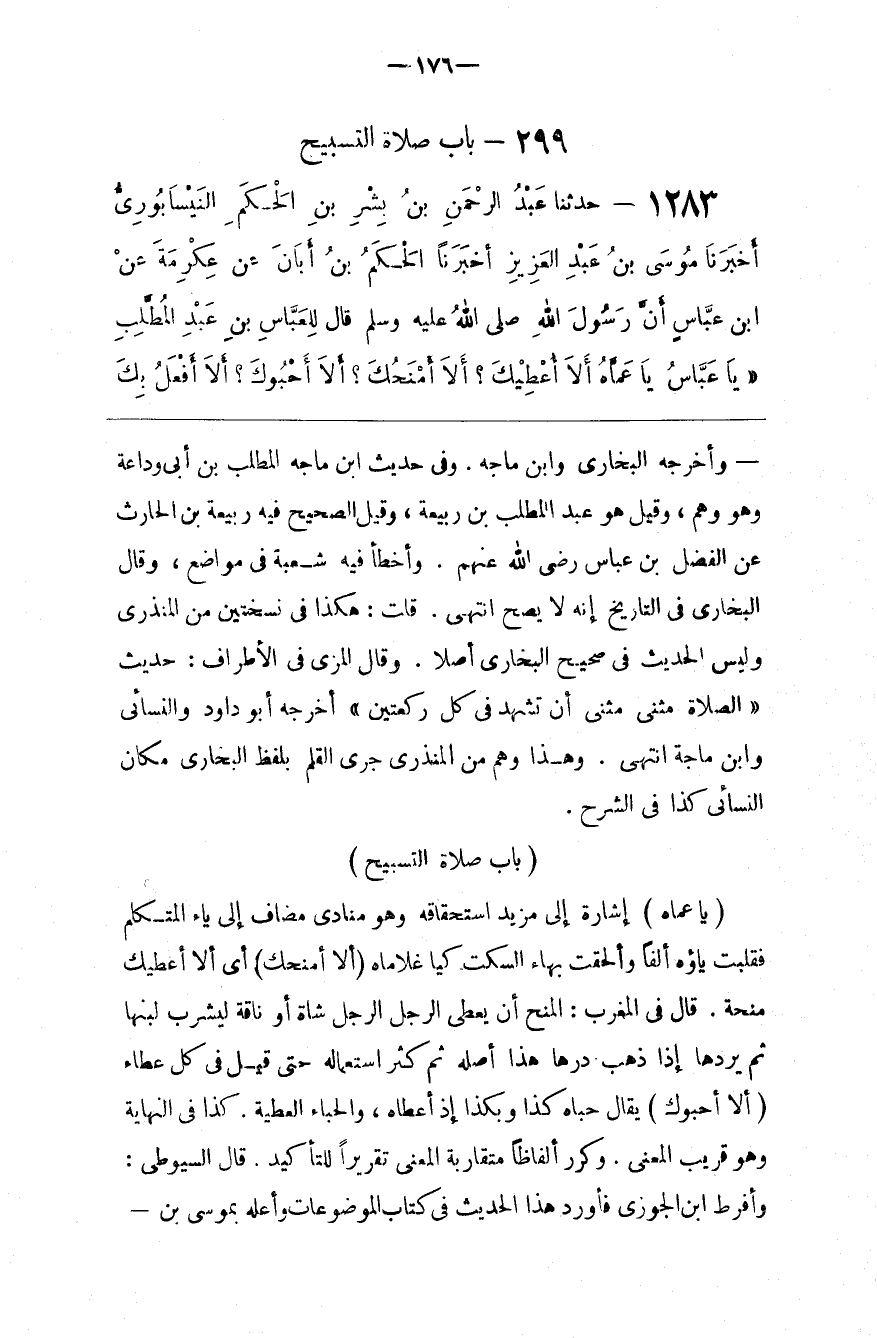 — ١٧٦ —
٢٩٩ — باب صلاة التسبيح
١٢٨٣ — حدثنا عَبْدُ الرحْمَنِ بنُ بِشْرِ بنِ الْحَكَمِ النَيْسَابُورِىُّ
أَخبَرَنَا مُوسَى بنُ عَبْدِ العَزِيزِ أخبَرَنَا الْحَكَمُ بنُ أَبَانَ عن عِكْرِمَةَ عنْ
ابن عبَّاسٍ أنَّ رَسُولَ اللهِ صلى اللهُ عليه وسلم قال لِلعَبَّاسِ بنِ عَبْدِ المُطَّلِبِ
« يَا عَبَّاسُ يَا عَمَّاهُ أَلاَ أُعْطِيْكَ ؟ أَلاَ أَمْنَحُكَ ؟ أَلاَ أَحْبُوكَ ؟ أَلاَ أَفْعَلُ بِكَ
— وأخرجه البخارى وابن ماجه . وفى حديث ابن ماجه المطلب بن أبى وداعة
وهو وهم ، وقيل هو عبد المطلب بن ربيعة ، وقيل الصحيح فيه ربيعة بن الحارث
عن الفضل بن عباس رضى الله عنهم . وأخطأ فيه شعبة فى مواضع ، وقال
البخارى فى التاريخ إنه لا يصح انتهى . قلت : هكذا فى نسختين من المنذرى
وليس الحديث فى صحيح البخارى أصلا . وقال المزى فى الأطراف : حديث
« الصلاة مثنى مثنى أن تشهد فى كل ركعتين » أخرجه أبو داود والنسائى
وابن ماجة انتهى . وهذا وهم من المنذرى جرى القلم بلفظ البخارى مكان
النسائى كذا فى الشرح .
( باب صلاة التسبيح )
( يا عماه ) إشارة إلى مزيد استحقاقه وهو منادى مضاف إلى ياء المتكلم
فقلبت ياؤه ألفاً وألحقت بهاء السكت كيا غلاماه (ألا أمنحك) أى ألا أعطيك
منحة . قال فى المغرب : المنح أن يعطى الرجل الرجل شاة أو ناقة ليشرب لبنها
ثم يردها إذا ذهب درها هذا أصله ثم كثر استعماله حتى قيل فى كل عطاء
( ألا أحبوك ) يقال حباه كذا وبكذا إذ أعطاه ، والحباء العطية . كذا فى النهاية
وهو قريب المعنى . وكرر ألفاظاً متقاربة المعنى تقريراً للتأكيد . قال السيوطى :
وأفرط ابن الجوزى فأورد هذا الحديث فى كتاب الموضوعات وأعله بموسى بن —